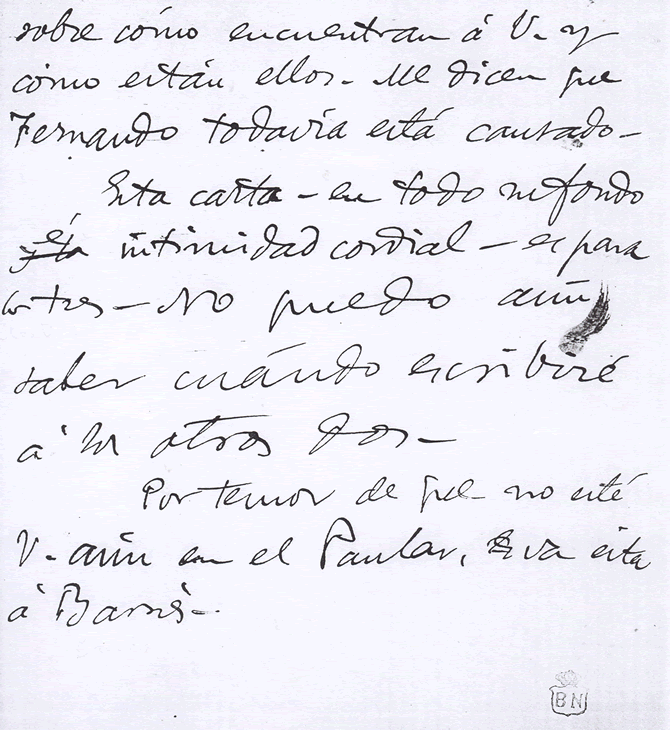 sobre cómo encuentran á V. y
cómo están ellos. Me dicen que
Fernando todavía está cansado—
Esta carta — en todo su fondo
é intimidad cordial — es para
los tres — No puedo aún
saber cuándo escribiré
á los otros dos —
Por temor de que no esté
V. aún en el Paular, va esta
á Barnés.
BN